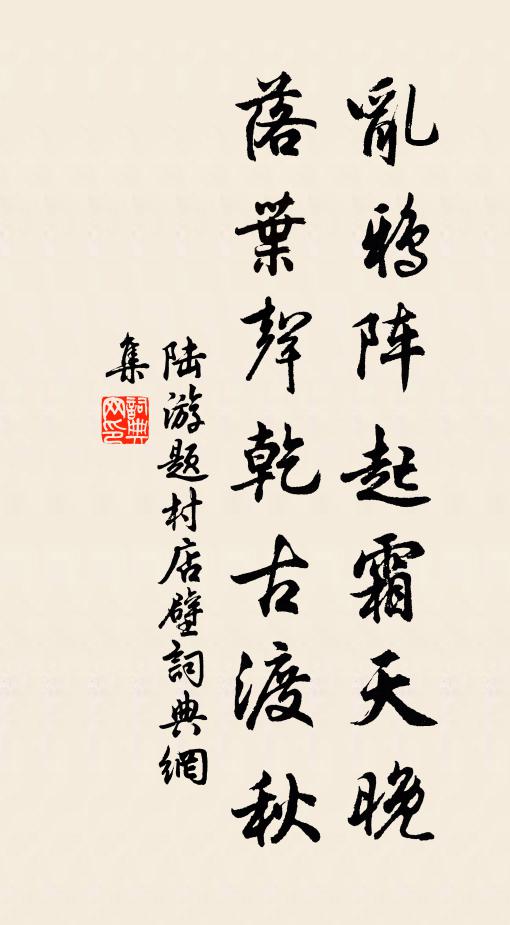 亂鴉阵起霜天晚
落葉聲乾古渡秋
陆游题村店壁詞典網
集
詞典网印